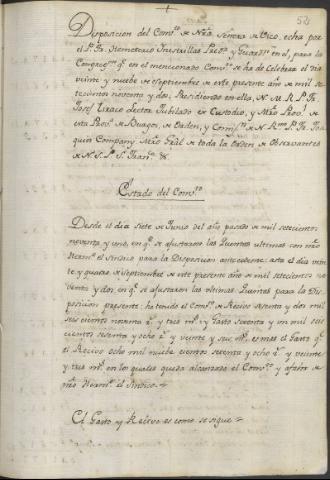 52
Disposicion del Conv.to de Nra Señora de Vico, echa por
el P. Fr. Hemeterio Inestrillas Pred.or y Guardian en el, para la
Congreg.on q.e en el mencionado Conv.to se ha de Celebrar el dia
veinte y nuebe de Septiembre de este presente año de mil se-
tecientos noventa y dos, Presidiendo en ella, N. M. R. P. Fr.
Josef Lector Jubilado ex Custodio, y Mro Prov.l de
esta Prov.a de Burgos, de Orden, y Com.on de N. R.mo P. Fr. Joa-
quin Company Mro Gral de toda la Orden de Observantes
de N. S. P. S. Fran.co &.
Estado del Conv.to
Desde el dia siete de Junio del año pasado de mil setecientos
noventa y uno, en q.e se ajustaron las Quentas ultimas con nro
Herm.o el sindico para la Disposicion antecedente: asta el dia vein-
te y quatro de septiembre de este presente año de mil setecientos no-
venta y dos, en q.e se ajustaron las ultimas Quentas para la Dis-
posicion presente: ha tenido el Conv.to de Recivo sesenta y dos mil
seis cientos noventa r.s y tres m.s y Gasto setenta y un mil seis
cientos sesenta y ocho r.s y veinte y seis m.s, es mas el Gasto q.e
el Recivo ocho mil nuebe cientos setenta y ocho r.s y veinte
y tres m.s en los quales queda alcanzado el Conv.to y a favor de
nro Herm.o el Sindico
El Gasto y Recivo es como se sigue